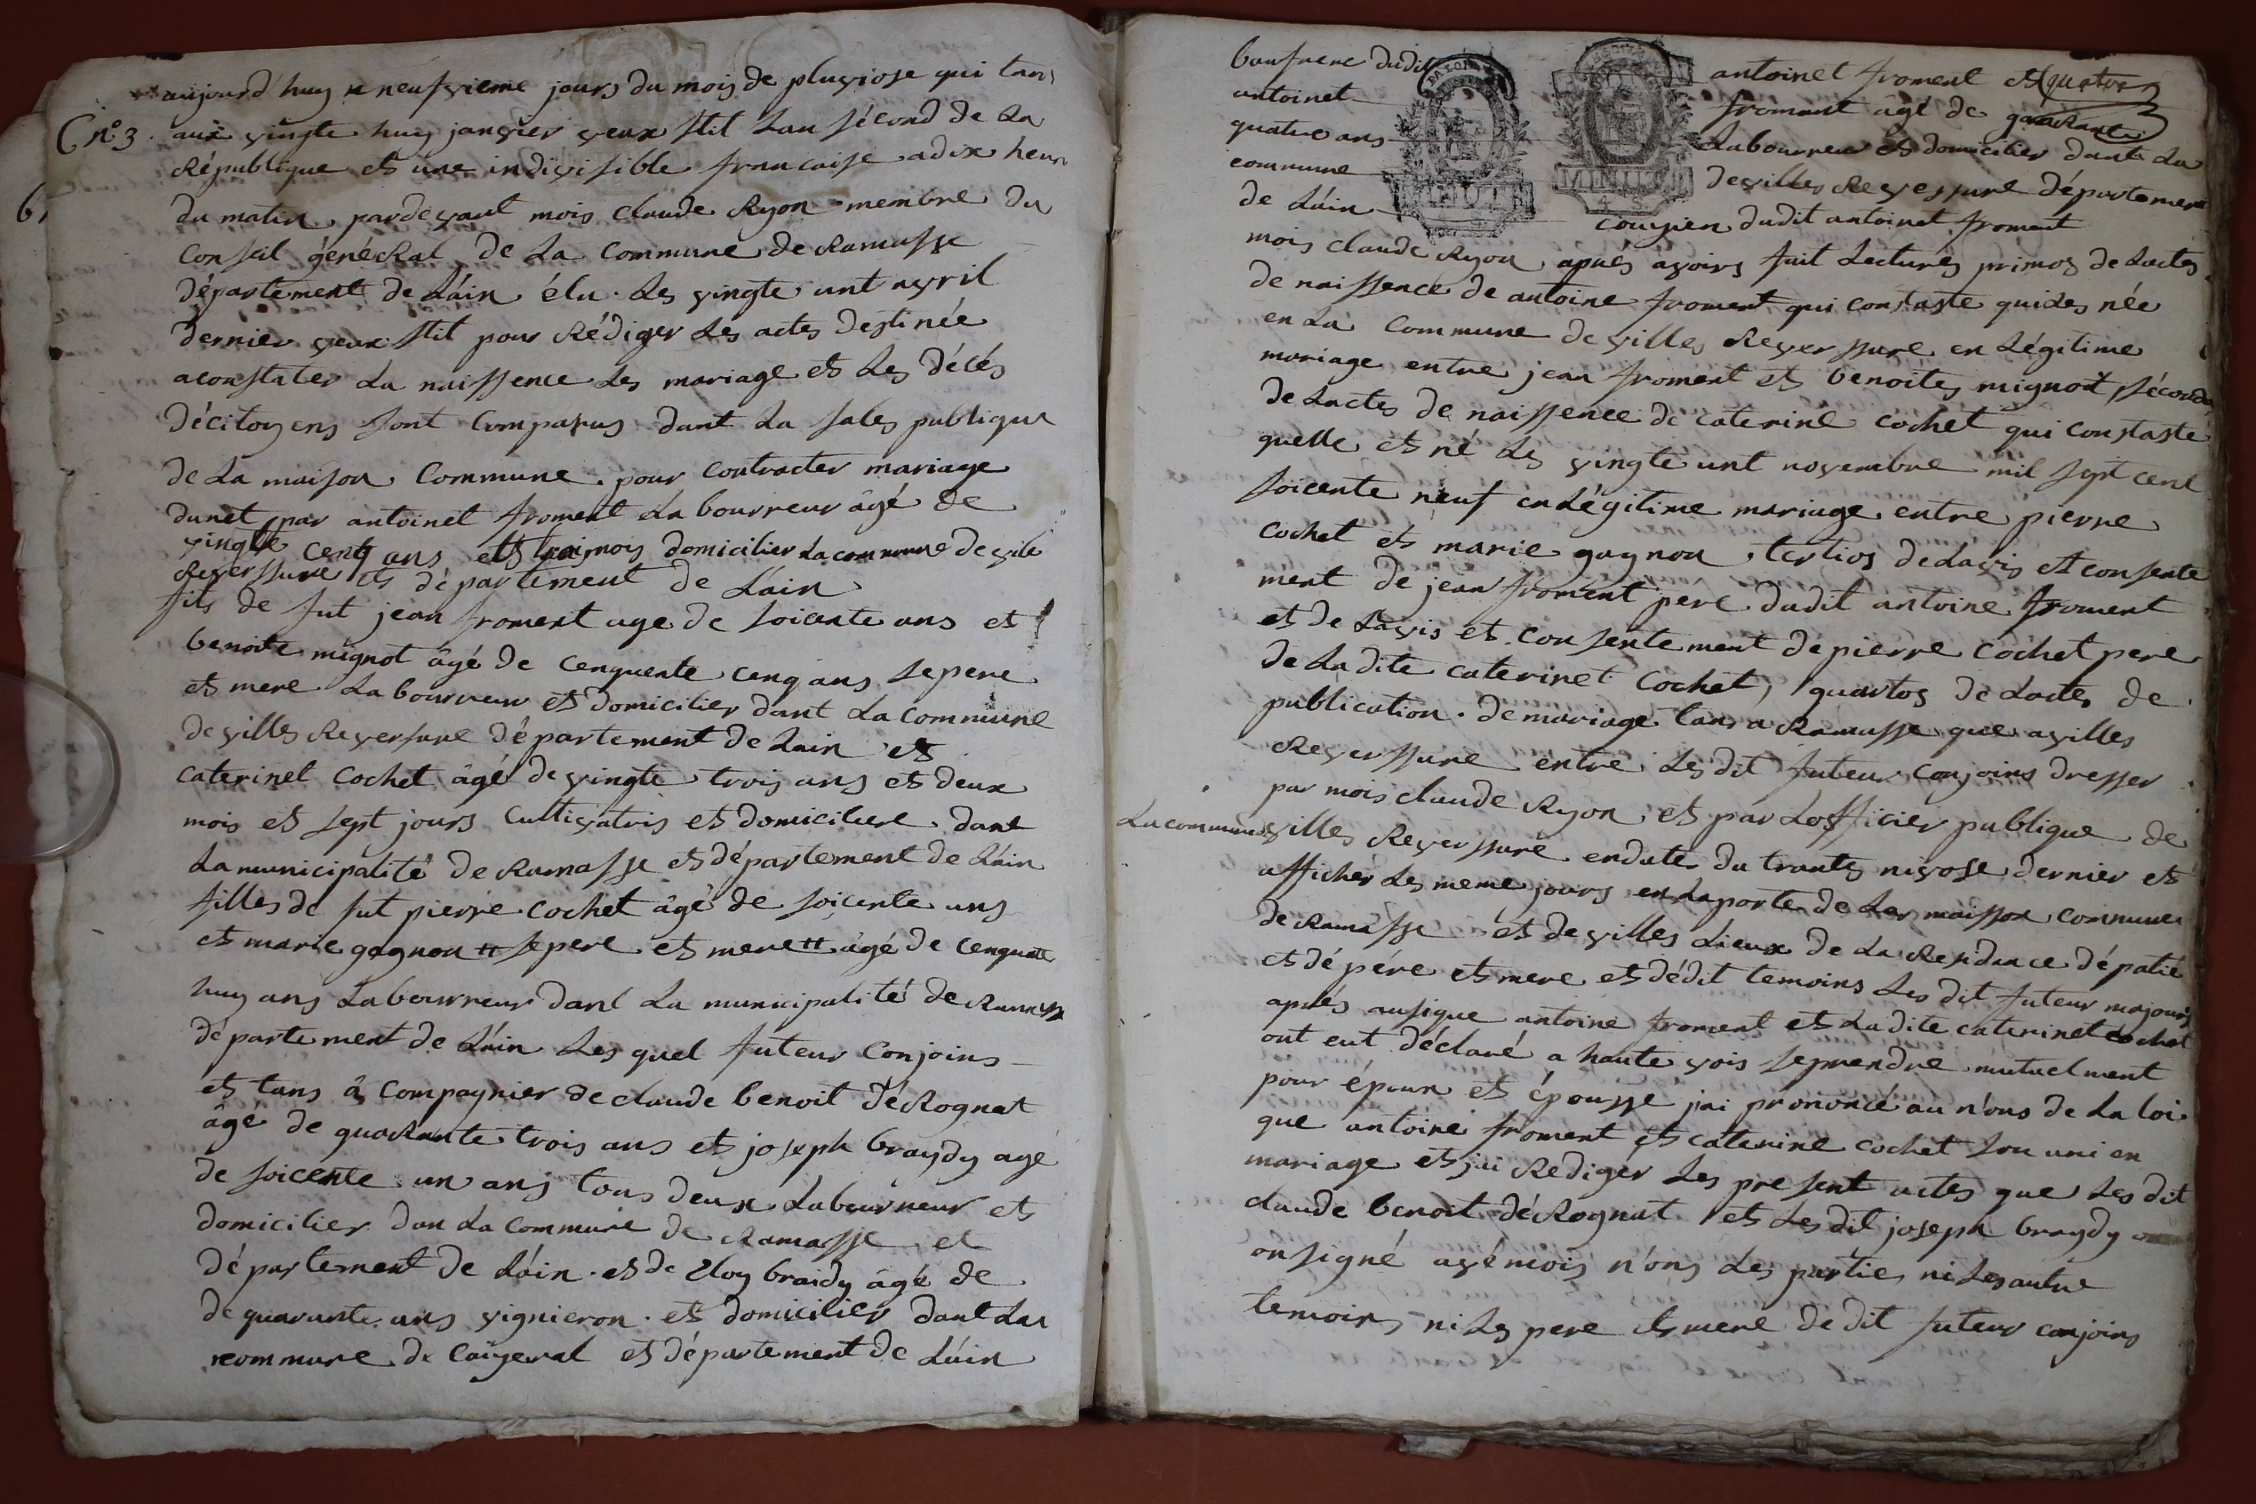 aujourd'huy neufvieme jours du mois de pluviose qui tans
C n° 3. aux vingte huy janvier veux stil Lan sécond de La
République et une indivisible francaise adix heur
6
du matin pardevant mois claude Ryon membre du
conseil généRal de La Commune de Ramasse
département de L'áin élu Les vingte unt avril
dernier veux stil pour Rédiger Les actes destinée
aconstater La naissence Les mariage et Les décés
décitoyens sont Comparus dant La sales publique
de La maison Commune pour contracter mariage
dunet par antoinet froment Labourreur âgé de
vingte cenq ans et trois mois domicilier La commune de vile
Reverssure et département de L'áin
fits de fut jean froment age de soicente ans et
benoite mignot âgé de cenquente cenq ans Lepere
et mere Labourreur et domicilier dant La commune
de villes Reversure département de Lain et
caterinet cochet âgé de vingte trois ans et deux
mois et sept jours Cultivatris et domiciliere dant
La municipalité de Ramasse et département de L'áin
filles de fut pierre cochet âgé de soicente ans
et marie gagnon # Lepere et mere # âgé de cenquente
huy ans Labourreur dant La municipalité de Ramasse
département de L'áin Les quel futeur Conjoins
et tans â Compagnier de claude benoit déRognat
âgé de quaRante trois ans et joseph braydy agé
de soicente un ans tous deux Labourreur et
domicilier dan La Commune de Ramasse et
département de L'áin et de Eloy braidy âgé de
de quarante ans vignieron et domicilier dant La
commune de Caigeral et département de L'áin
baufrere dudit antoinet froment et quatre
antoinet froment agé de quaRante
quatre ans Labourreur et domicilier dant La
commune de villes Reverssure département
de L'áin cousien dudit antoinet froment
mois claude Ryon aprés avoirs fait Lectures primos de Lactes
de naissence de antoine froment qui constaste quiles née
en La Commune de villes Reverssure en Légitime
mariage entre jean froment et benoites mignot, sécondes
de Lactes de naissence de caterine cochet qui constaste
quelle et né Les vingte unt novembre mil sept cent
soicente neuf en Légitime mariage entre pierre
cochet et marie gagnon tertios de Lavis et consente
ment de jean froment pere dudit antoine froment
et de Lavis et consentement de pierre cochet pere
de Ladite caterinet Cochet, quartos de Lactes de
publication de mariage tans a Ramasse que avilles
Reverssure entre Lesdit futeur conjoins dresser
par mois claude Ryon et par Losfficier publique de
La commune villes Reverssure endates du trantes nivose dernier et
afficher Les meme jours en Laporte de Les maisson commune
de Ramasse et de villes Lieux de La Residance dépatié
et dépére et mere et dédit temoins Les dit futeur majours
aprés ausique antoine froment et Ladite caterinet cochet
ont eut déclaré a haute vois seprendre mutuelment
pour époux et épousse jai prononcé au n'ons de La loi
que antoine froment et caterine cochet son uni en
mariage et jai Rediger Les present actes que Les dit
claude benoit déRognat et Les dit joseph braydy
on signé avé mois n'ons Les partie ni Les autre
temoins ni Les pere et mere de dit futeur conjoins